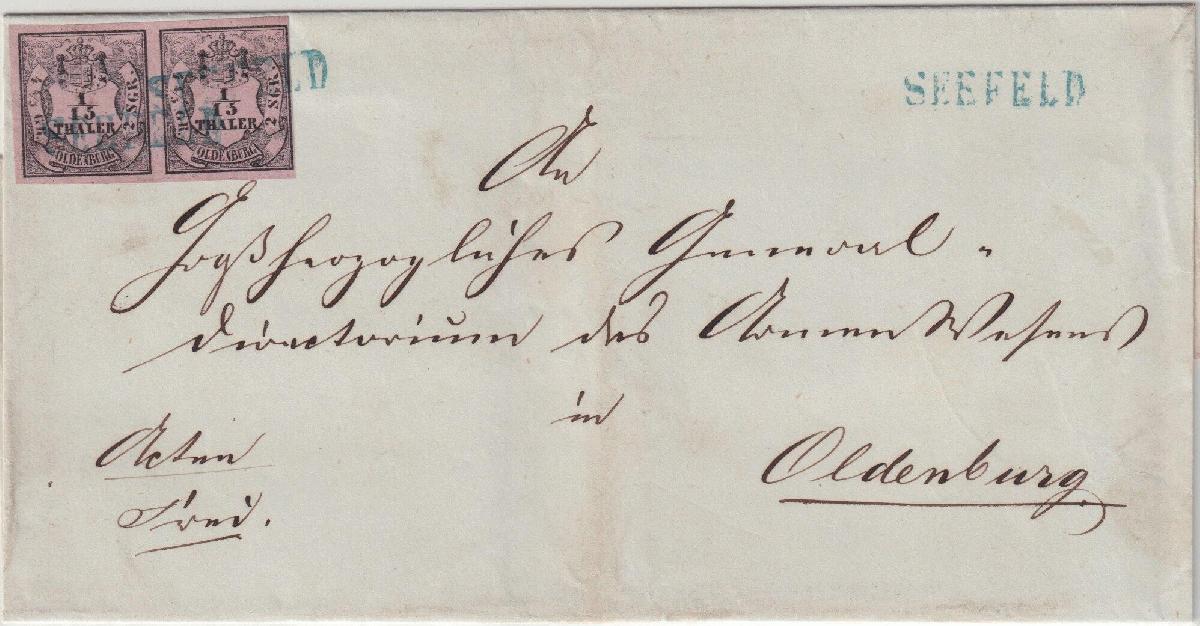 1/15
THALER
2 SGR.
OLDENBURG
1/15
THALER
2 SGR.
OLDENBURG
SEEFELD
SEEFELD
SEEFELD
An
Großherzogliches General-
directorium des Armen Wesens
in
Oldenburg
Acten
Frei.